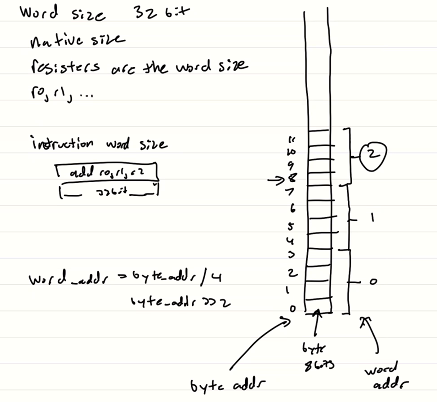 Word size 32 bit
native size
resisters are the word size
r0, r1, ...
instruction word size
add r0, r1, r2
32bit
word_addr = byte_addr / 4
byte_addr >> 2
11
10
9
8
7
6
5
4
3
2
1
0
2
1
0
byte addr
byte
8 bits
word
addr